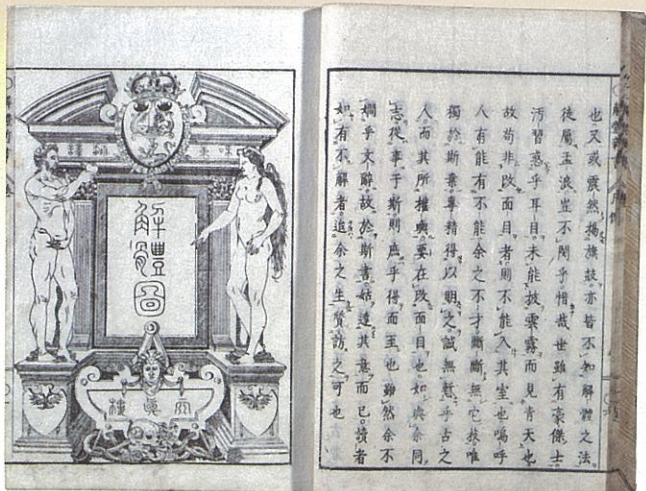 也又或震然揚旗鼓亦皆不知解體之法
徒屬孟浪豈不閔乎惜哉世雖有豪傑士
汚習惑乎耳目未能披雲霧而見青天也
故苟非改面目者則不能入其室也嗚呼
人有能有不能余之不才斷斷無它技唯
獨於斯業專精得以明之誠無慙乎古之
人而其所權輿要在改面目也如與余同
志從事于斯則庶乎得而至也雖然余不
嫺乎文辭故於斯書姑達其意而已讀者
如有不解者追余之生質訪之可也
解體圖
天真樓